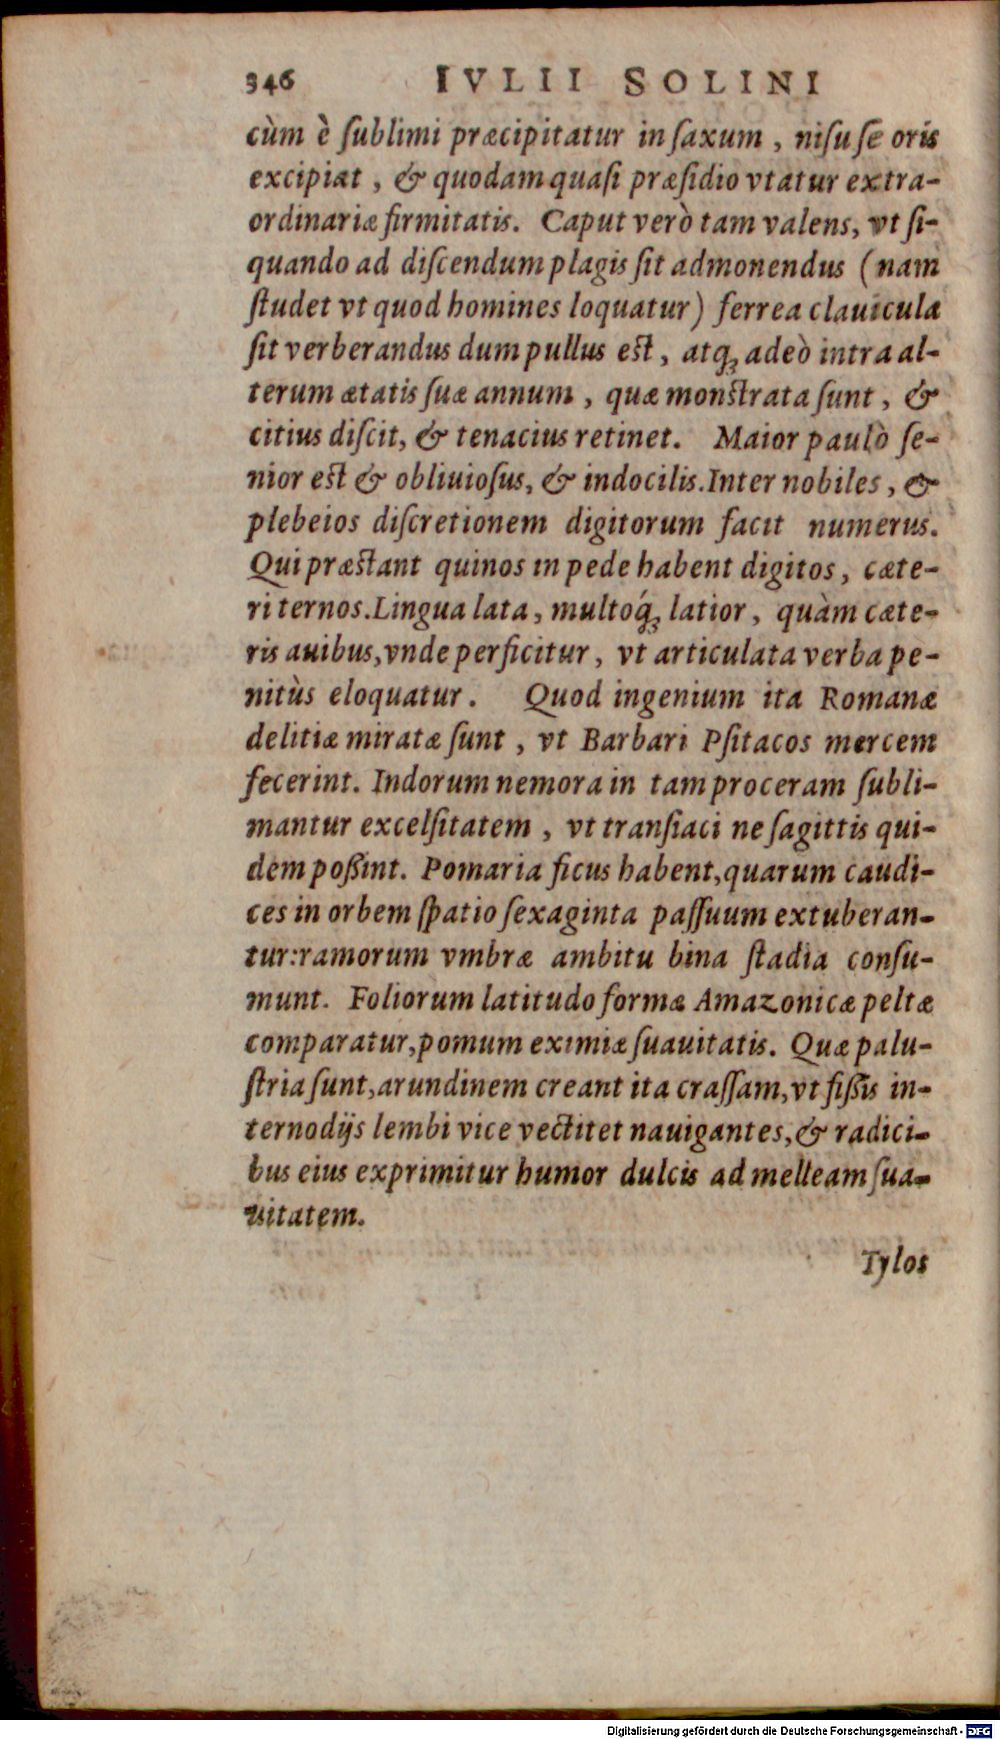 346 IVLII SOLINI
cùm è ſublimi præcipitatur in ſaxum , niſu ſe oris
excipiat , & quodam quaſi præſidio vtatur extra-
ordinariæ firmitatis. Caput verò tam valens, vt ſi-
quando ad diſcendum plagis ſit admonendus (nam
ſtudet vt quod homines loquatur) ferrea clauicula
ſit verberandus dum pullus eſt , atq; adeò intra al-
terum ætatis ſuæ annum , quæ monſtrata ſunt , &
citius diſcit, & tenacius retinet. Maior paulò ſe-
nior eſt & obliuioſus, & indocilis. Inter nobiles , &
plebeios diſcretionem digitorum facit numerus.
Qui præſtant quinos in pede habent digitos , cæte-
ri ternos. Lingua lata , multoq́; latior , quàm cæte-
ris auibus, vnde perficitur , vt articulata verba pe-
nitùs eloquatur . Quod ingenium ita Romanæ
delitiæ miratæ ſunt , vt Barbari Pſitacos mercem
fecerint. Indorum nemora in tam proceram ſubli-
mantur excelſitatem , vt tranſiaci ne ſagittis qui-
dem poßint. Pomaria ficus habent, quarum caudi-
ces in orbem ſpatio ſexaginta paſſuum extuberan-
tur: ramorum vmbræ ambitu bina ſtadia conſu-
munt. Foliorum latitudo formæ Amazonicæ peltæ
comparatur, pomum eximiæ ſuauitatis. Quæ palu-
ſtria ſunt, arundinem creant ita craſſam, vt fißis in-
ternodijs lembi vice vectitet nauigantes, & radici-
bus eius exprimitur humor dulcis ad melleam ſua-
uitatem.
Tylos
Digitalisierung gefördert durch die Deutsche Forschungsgemeinschaft - DFG